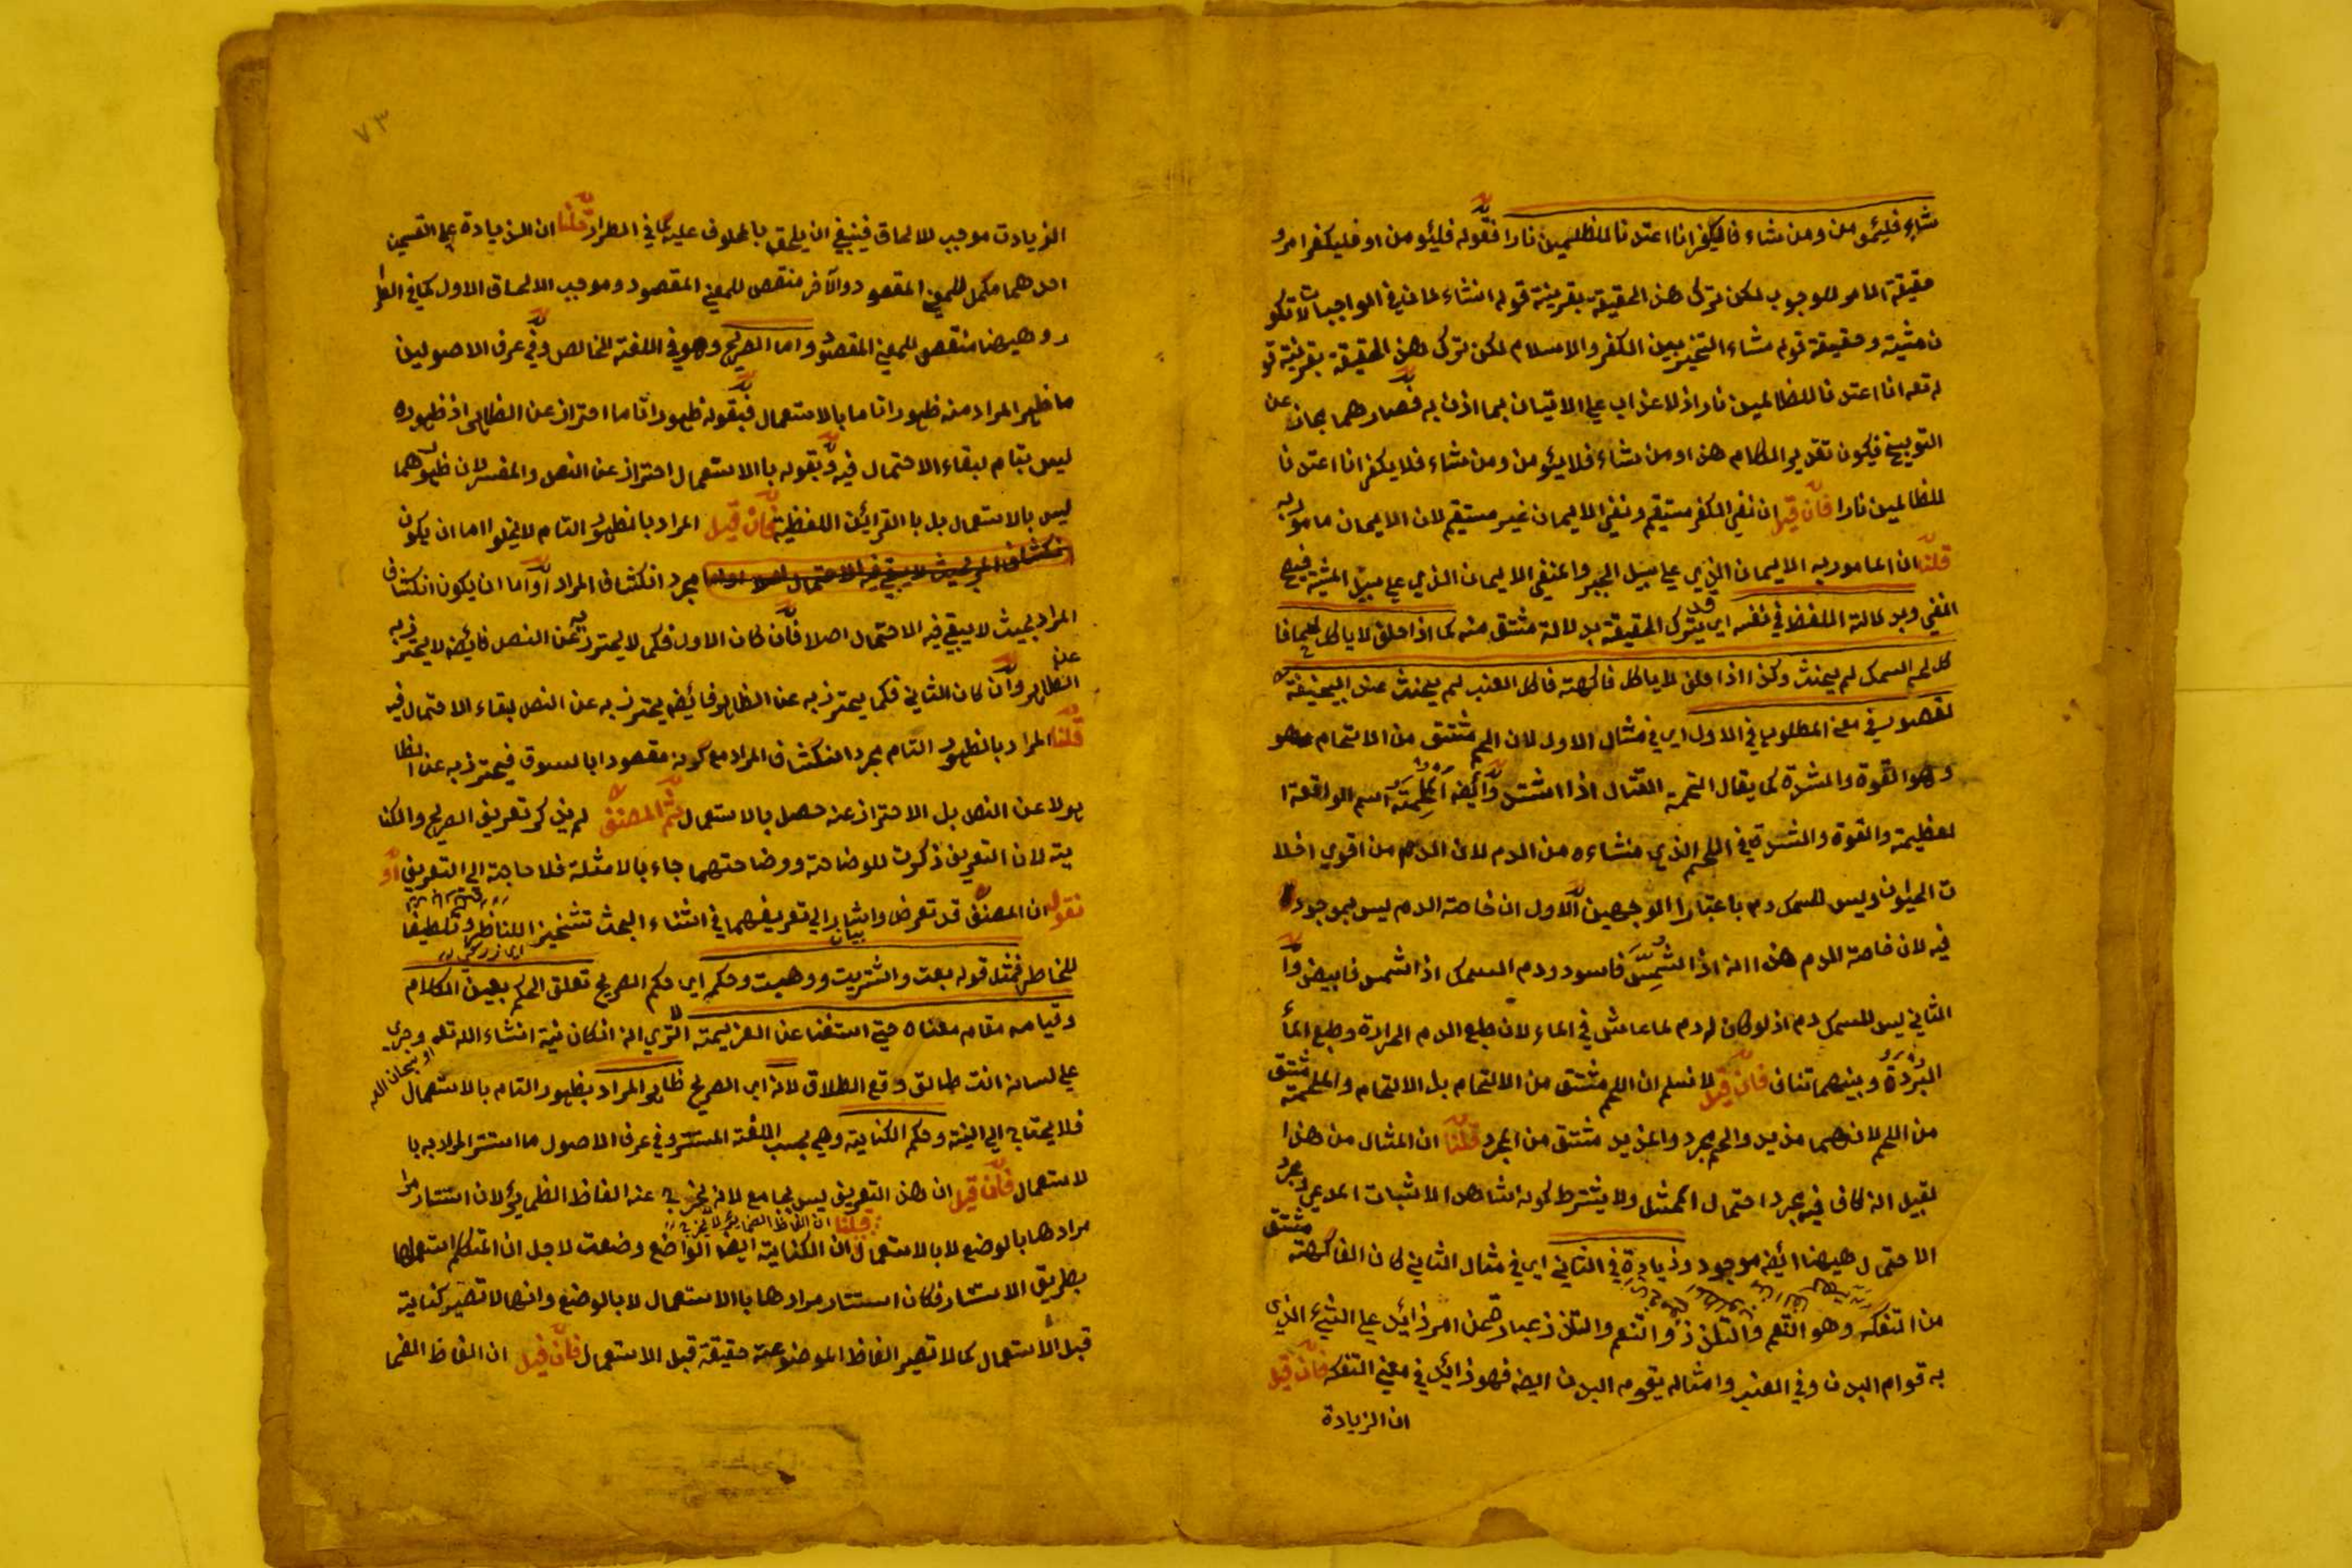 شاء فليؤمن ومن شاء فاليكفر انا اعتدنا للظلمين نارا فقوله فليؤمن او فليكفر امر و
حقيقة المامر للوجوب لكن ترك هذه الحقيقة بقرينة قوله انشاء لما في الواجبات لا تكو
ن مشية وحقيقة قوله شاء التخير بين الكفر والاسلام لكن ترك هذه الحقيقة بقرينة قو
له تعه انا اعتدنا للظالمين نارا اذ لا عذاب علي الاتيان بما اذن به فصار هما مجاز عن
التوبيخ فيكون تقدير الكلام هذا ومن شاء فلا يئومن ومن شاء فلا يكفر انا اعتدنا
للظالمين نارا فان قيل ان نفي الكفر مستقيم ونفي الايمان غير مستقيم لان الايمان مامور به
قلنا ان المامور به الايمان الذي علي سبيل الجبر والمنفي الايمان الذي علي سبيل المشية فيصح
النفي وبدلالة اللفظ في نفسه اي قد يترك الحقيقة بدلالة مشتق منه كما اذا حلف لا ياكل لحما فا
كل لحم السمك لم يحنث وكذا اذا حلف لا ياكل فاكهة فاكل العنب لم يحنث عند ابيحنيفة
لقصور في معني المطلوب في الاول اي في مثال الاول لان اللحم مشتق من الالتحام
وهو القوة والشدة كما يقال التحم القتال اذا اشتد وايضه الملحمة اسم الواقعة ا
لعظيمة والقوة والشدة في اللحم الذي منشاءه من الدم لان الدم من اقوي اخلا
ت الحيوان وليس للسمك دم باعتبار الوجهين الاول ان خاصة الدم ليس بموجود
فيه لان خاصة الدم هذا انه اذا شمس فاسود ودم السمك اذا شمس فابيض وا
لثاني ليس للسمك دم اذ لو كان له دم لما عاش في الماء لان طبع الدم الحرارة وطبع الما
البرودة وبينهما تناف فان قيل لا نسلم ان اللحم مشتق من الالتحام بل الالتحام والملحمة مشتق
من اللحم لانهما مزيد واللحم مجرد والمزيد مشتق من المجرد قلنا ان المثال من هذا
لقبيل انه كاف فيه مجرد احتمال الممثل ولا يشترط كونه شاهد الاثبات المدعي ومجرد
الاحتمال ههنا ايضه موجود وزيادة في الثاني اي في مثال الثاني كان الفاكهة مشتق
من التفكه وهو التنعم والتلذذ والتنعم والتلذذ عبارة عن امر زائد علي الشئ الذي
به قوام البدن وفي العنب وامثاله يقوم به البدن ايضه فهو زائد في معني التفكه فان قيل
ان الزيادة
٧٣
الزيادت موجب للالحاق فينبغي ان يلحق بالمحلوف عليه كما في الطرار قلنا ان الزيادة علي القسمين
احدهما مكمل للمعني المقصود والآخر منقص للمعني المقصود وموجب الالحاق الاول كما في الطرا
ر وههنا منقص للمعني المقصود واما الصريح وهو في اللغة الخالص وفي عرف الاصولين
ما ظهر المراد منه ظهورا تاما بالاستعمال فبقوله ظهورا تاما احتراز عن الظاهر اذ ظهوره
ليس بتام لبقاء الاحتمال فيه وبقوله بالاستعمال احتراز عن النص والمفسر لان ظهورهما
ليس بالاستعمال بل بالقرائن اللفظية فان قيل المراد بالظهور التام لا يخلوا اما ان يكون
مجرد انكشاف المراد او اما ان يكون انكشاف
المراد بحيث لا يبقي فيه الاحتمال اصلا فان كان الاول فكما لا يحترز به عن النص فايضه لا يحترز به عن
الظاهر وان كان الثاني فكما يحترز به عن الظاهر فايضه يحترز به عن النص لبقاء الاحتمال فيه
قلنا المراد بالظهور التام مجرد انكشاف المراد مع كونه مقصودا بالسوق فيحترز به عن الظا
هر لا عن النص بل الاحتراز عنه حصل بالاستعمال ثم المصنف لم يذكر تعريف الصريح والكنا
ية لان التعريف ذكرت للوضاحة ووضاحتهما جاء بالامثلة فلا حاجة الي التعريف او
نقول ان المصنف قد تعرض واشار الي تعريفهما في اثناء البحث تشحيذا للناظر وتلطيفا
للخاطر فمثل قوله بعت واشتريت ووهبت وحكمه اي حكم الصريح تعلق الحكم بعين الكلام
وقيامه مقام معناه حتي استغنا عن العزيمة الا تري انه ان كان نية انشاء الله تعه وجري
علي لسانه انت طالق وقع الطلاق لانه اي الصريح ظاهر المراد بظهور التام بالاستعمال
او سبحان الله
فلا يحتاج الي النية وحكم الكناية وهي بحسب اللغة المستتر وفي عرف الاصول ما استتر المراد به با
لاستعمال فان قيل ان هذا التعريف ليس بجامع لانه يخرج عنه الفاظ الضمائر لان استتار
مرادها بالوضع لا بالاستعمال قلنا ان الفاظ الضمائر لا يخرج لان الكناية ايضا الواضع وضعت لاجل ان المتكلم استعملها
بطريق الاستتار فكان استتار مرادها بالاستعمال لا بالوضع وانها لا تصير كناية
قبل الاستعمال كما لا تصير الفاظ الموضوعة حقيقة قبل الاستعمال فان قيل ان الفاظ الضما